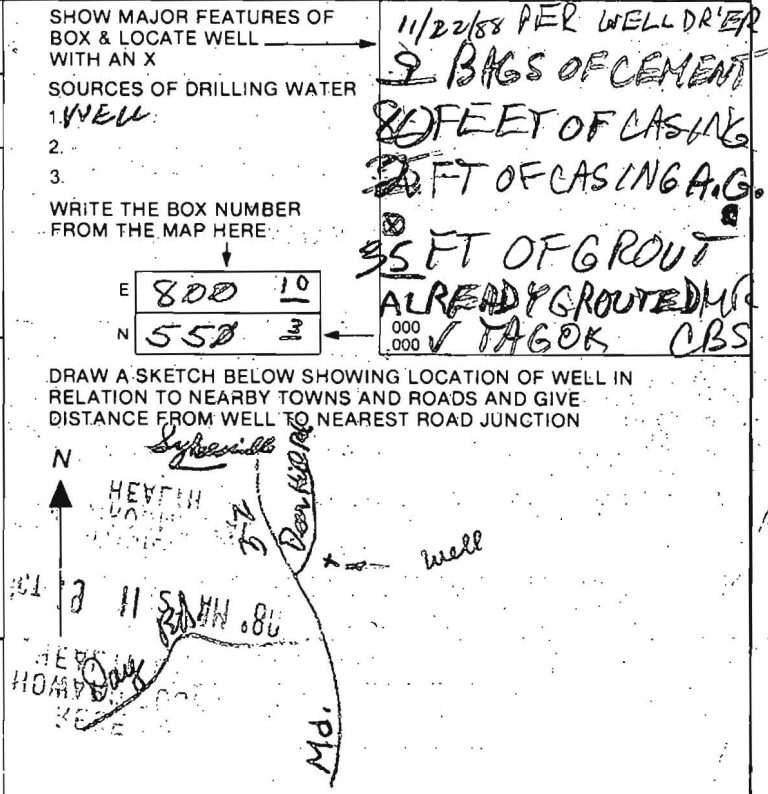 SHOW MAJOR FEATURES OF
BOX & LOCATE WELL
WITH AN X
SOURCES OF DRILLING WATER
1. WELL
2.
3.
WRITE THE BOX NUMBER
FROM THE MAP HERE
E 800 10
N 550
11/22/88 PER WELL DR'ER
9 BAGS OF CEMENT
80 FEET OF CASING
FT OF CASING A.G.
35 FT OF GROUT
ALREADY GROUTED MR
000
000 ✓ TAG OK CBS
DRAW A SKETCH BELOW SHOWING LOCATION OF WELL IN
RELATION TO NEARBY TOWNS AND ROADS AND GIVE
DISTANCE FROM WELL TO NEAREST ROAD JUNCTION
Sykesville
N
HEALTH
32
well
Day Rd
Md.